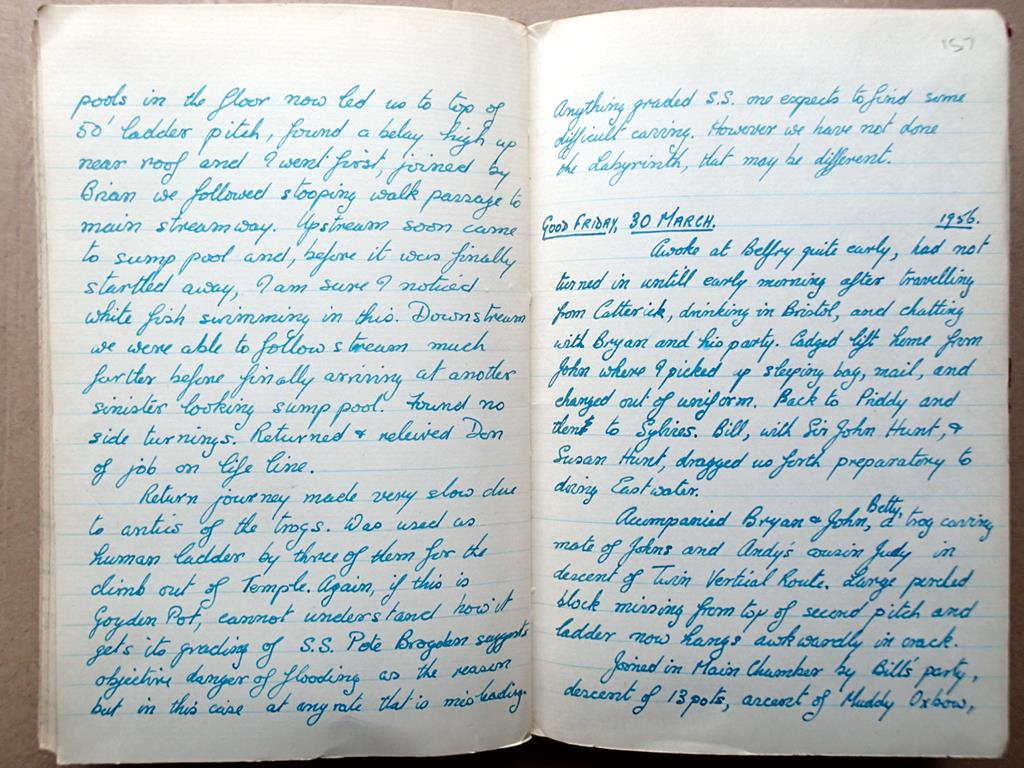 pools in the floor now led us to top of
50' ladder pitch, found a belay high up
near roof and I went first, joined by
Brian we followed stooping walk passage to
main streamway. Upstream soon came
to sump pool and, before it was finally
startled away, I am sure I noticed
white fish swimming in this. Downstream
we were able to follow stream much
further before finally arriving at another
sinister looking sump pool. Found no
side turnings. Returned & releived Don
of job on life line.
Return journey made very slow due
to antics of the trogs. Was used as
human ladder by three of them for the
climb out of Temple. Again, if this is
Goyden Pot, cannot understand how it
gets its grading of S.S. Pete Brogden suggests
objective danger of flooding as the reason
but in this case at any rate that is mis-leading.
157
Anything graded S.S. one expects to find some
difficult caving. However we have not done
the Labyrinth, that may be different.
GOOD FRIDAY, 30 MARCH. 1956.
Awoke at Belfry quite early, had not
turned in untill early morning after travelling
from Catterick, drinking in Bristol, and chatting
with Bryan and his party. Cadged lift home from
John where I picked up sleeping bag, mail, and
changed out of uniform. Back to Priddy and
then to Sylvies. Bill, with Sir John Hunt, &
Susan Hunt, dragged us forth preparatory to
doing Eastwater.
Accompanied Bryan & John, Betty, a trog caving
mate of Johns and Andy's cousin Judy in
descent of Twin Vertial Route. Large perched
block missing from top of second pitch and
ladder now hangs awkwardly in crack.
Joined in Main Chamber by Bill's party,
descent of 13 pots, ascent of Muddy Oxbow,